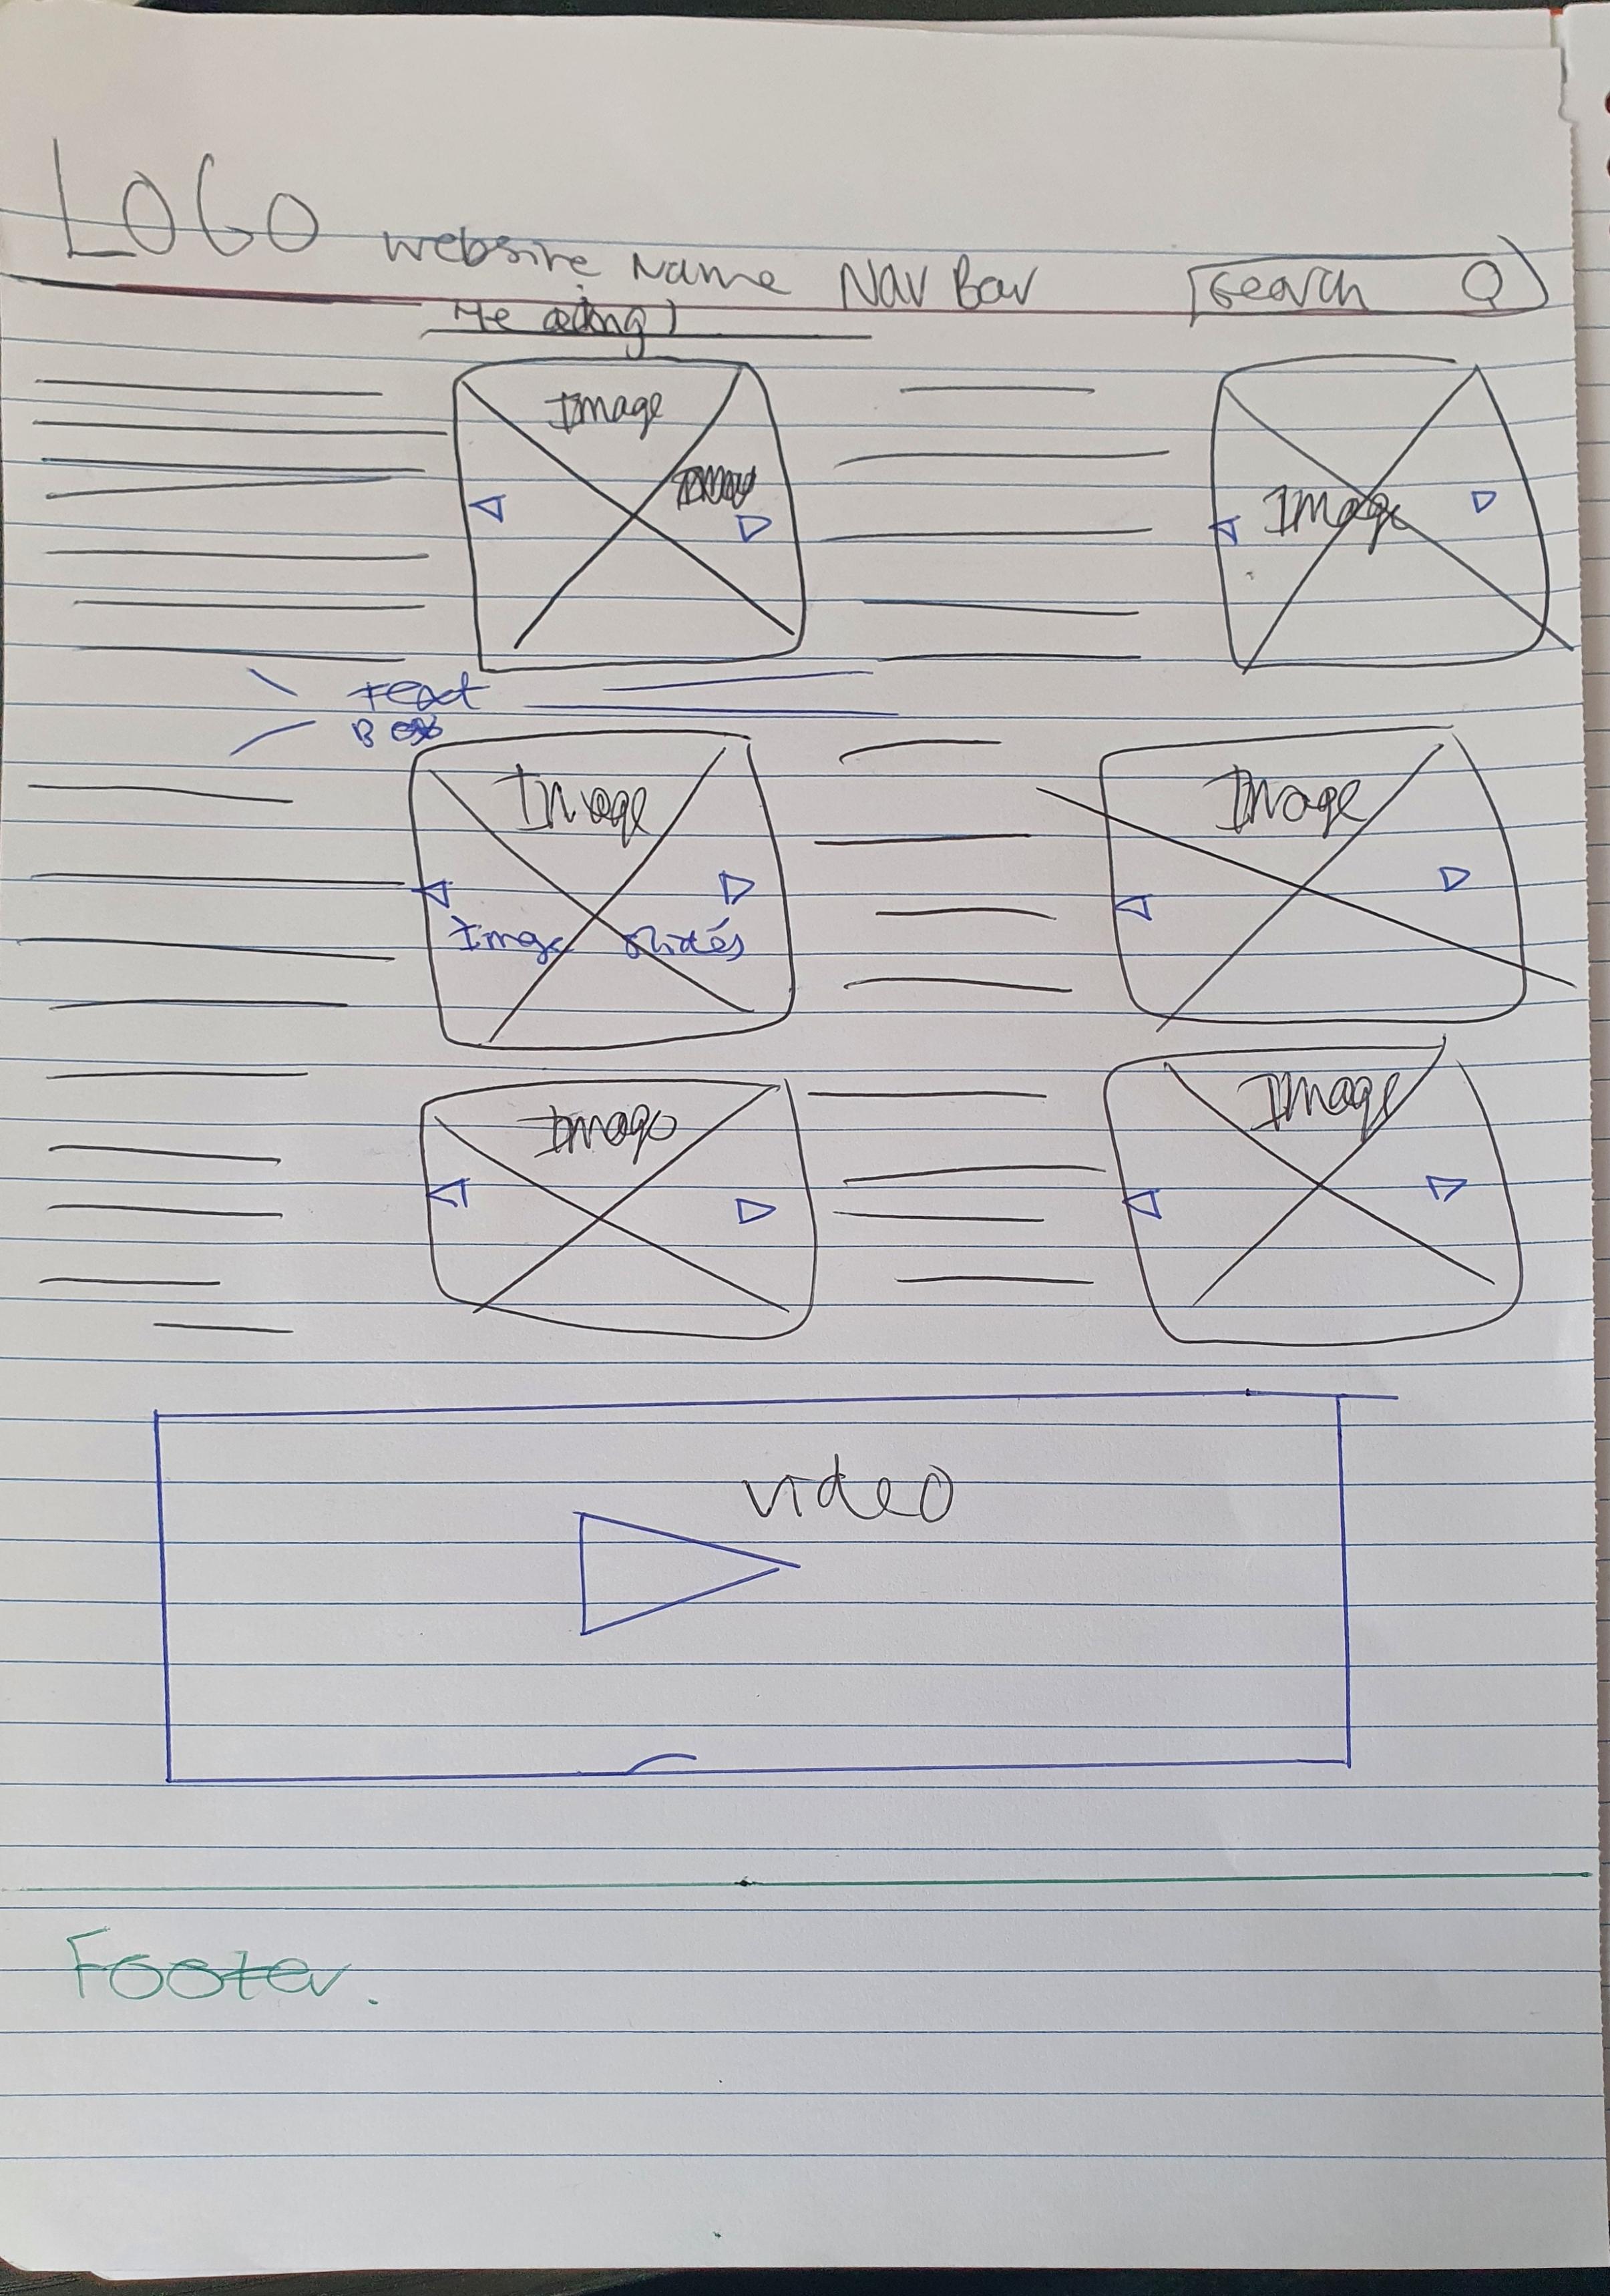 LOGO website Name Nav Bar search
Heading
Image
Image
Text
Box
Image
Image
Image slides
Image
Image
video
Footer.